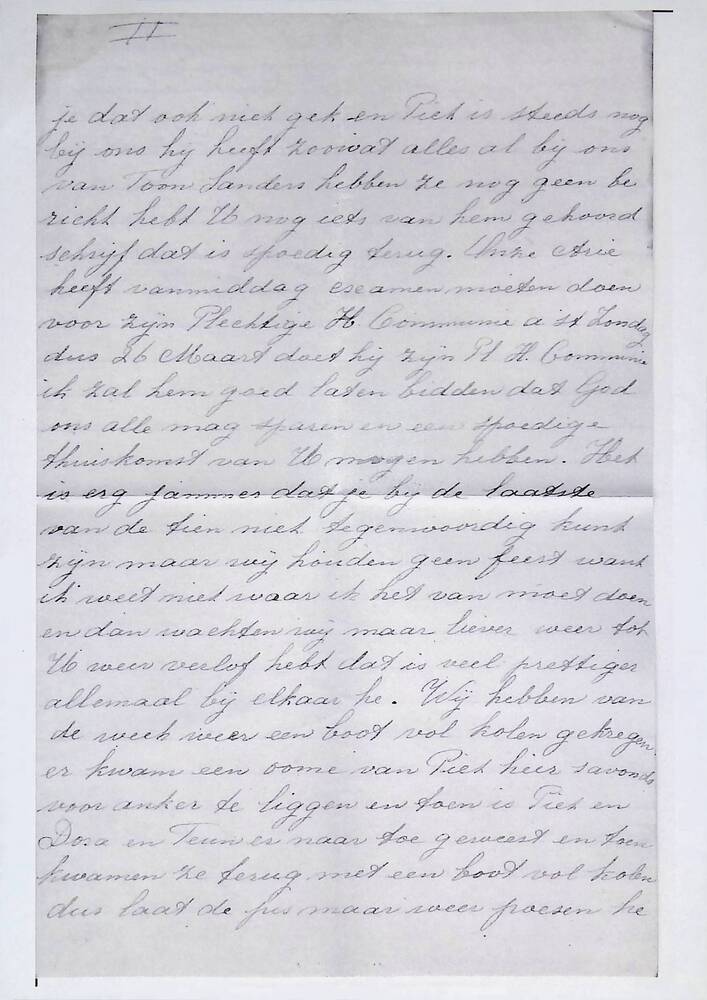 II
je dat ook niet gek en Piet is steeds nog
bij ons hij heeft zoowat alles al bij ons
van Toon Sanders hebben ze nog geen be
richt hebt U nog iets van hem gehoord
schrijf dat is spoedig terug. Onze Arie
heeft vanmiddag examen moeten doen
voor zijn Plechtige H Communie a st Zondag
dus 26 Maart doet hij zijn Pl H. Communie
ik zal hem goed laten bidden dat God
ons alle mag sparen en een spoedige
thuiskomst van U mogen hebben. Het
is erg jammer dat je bij de laatste
van de tien niet tegenwoordig kunt
zijn maar wij houden geen feest want
ik weet niet waar ik het van moet doen
en dan wachten wij maar liever weer tot
U weer verlof hebt dat is veel prettiger
allemaal bij elkaar he. Wij hebben van
de week weer een boot vol kolen gekregen
er kwam een oome van Piet hier savonds
voor anker te liggen en toen is Piet en
Dora en Teun er naar toe geweest en toen
kwamen ze terug met een boot vol kolen
dus laat de maar weer poesen he